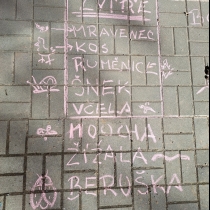 ZVÍŘE
MRAVENEC
KOS
RUMĚNICE
ŠNEK
VČELA
MOUCHA
ŽÍŽALA
BERUŠKA